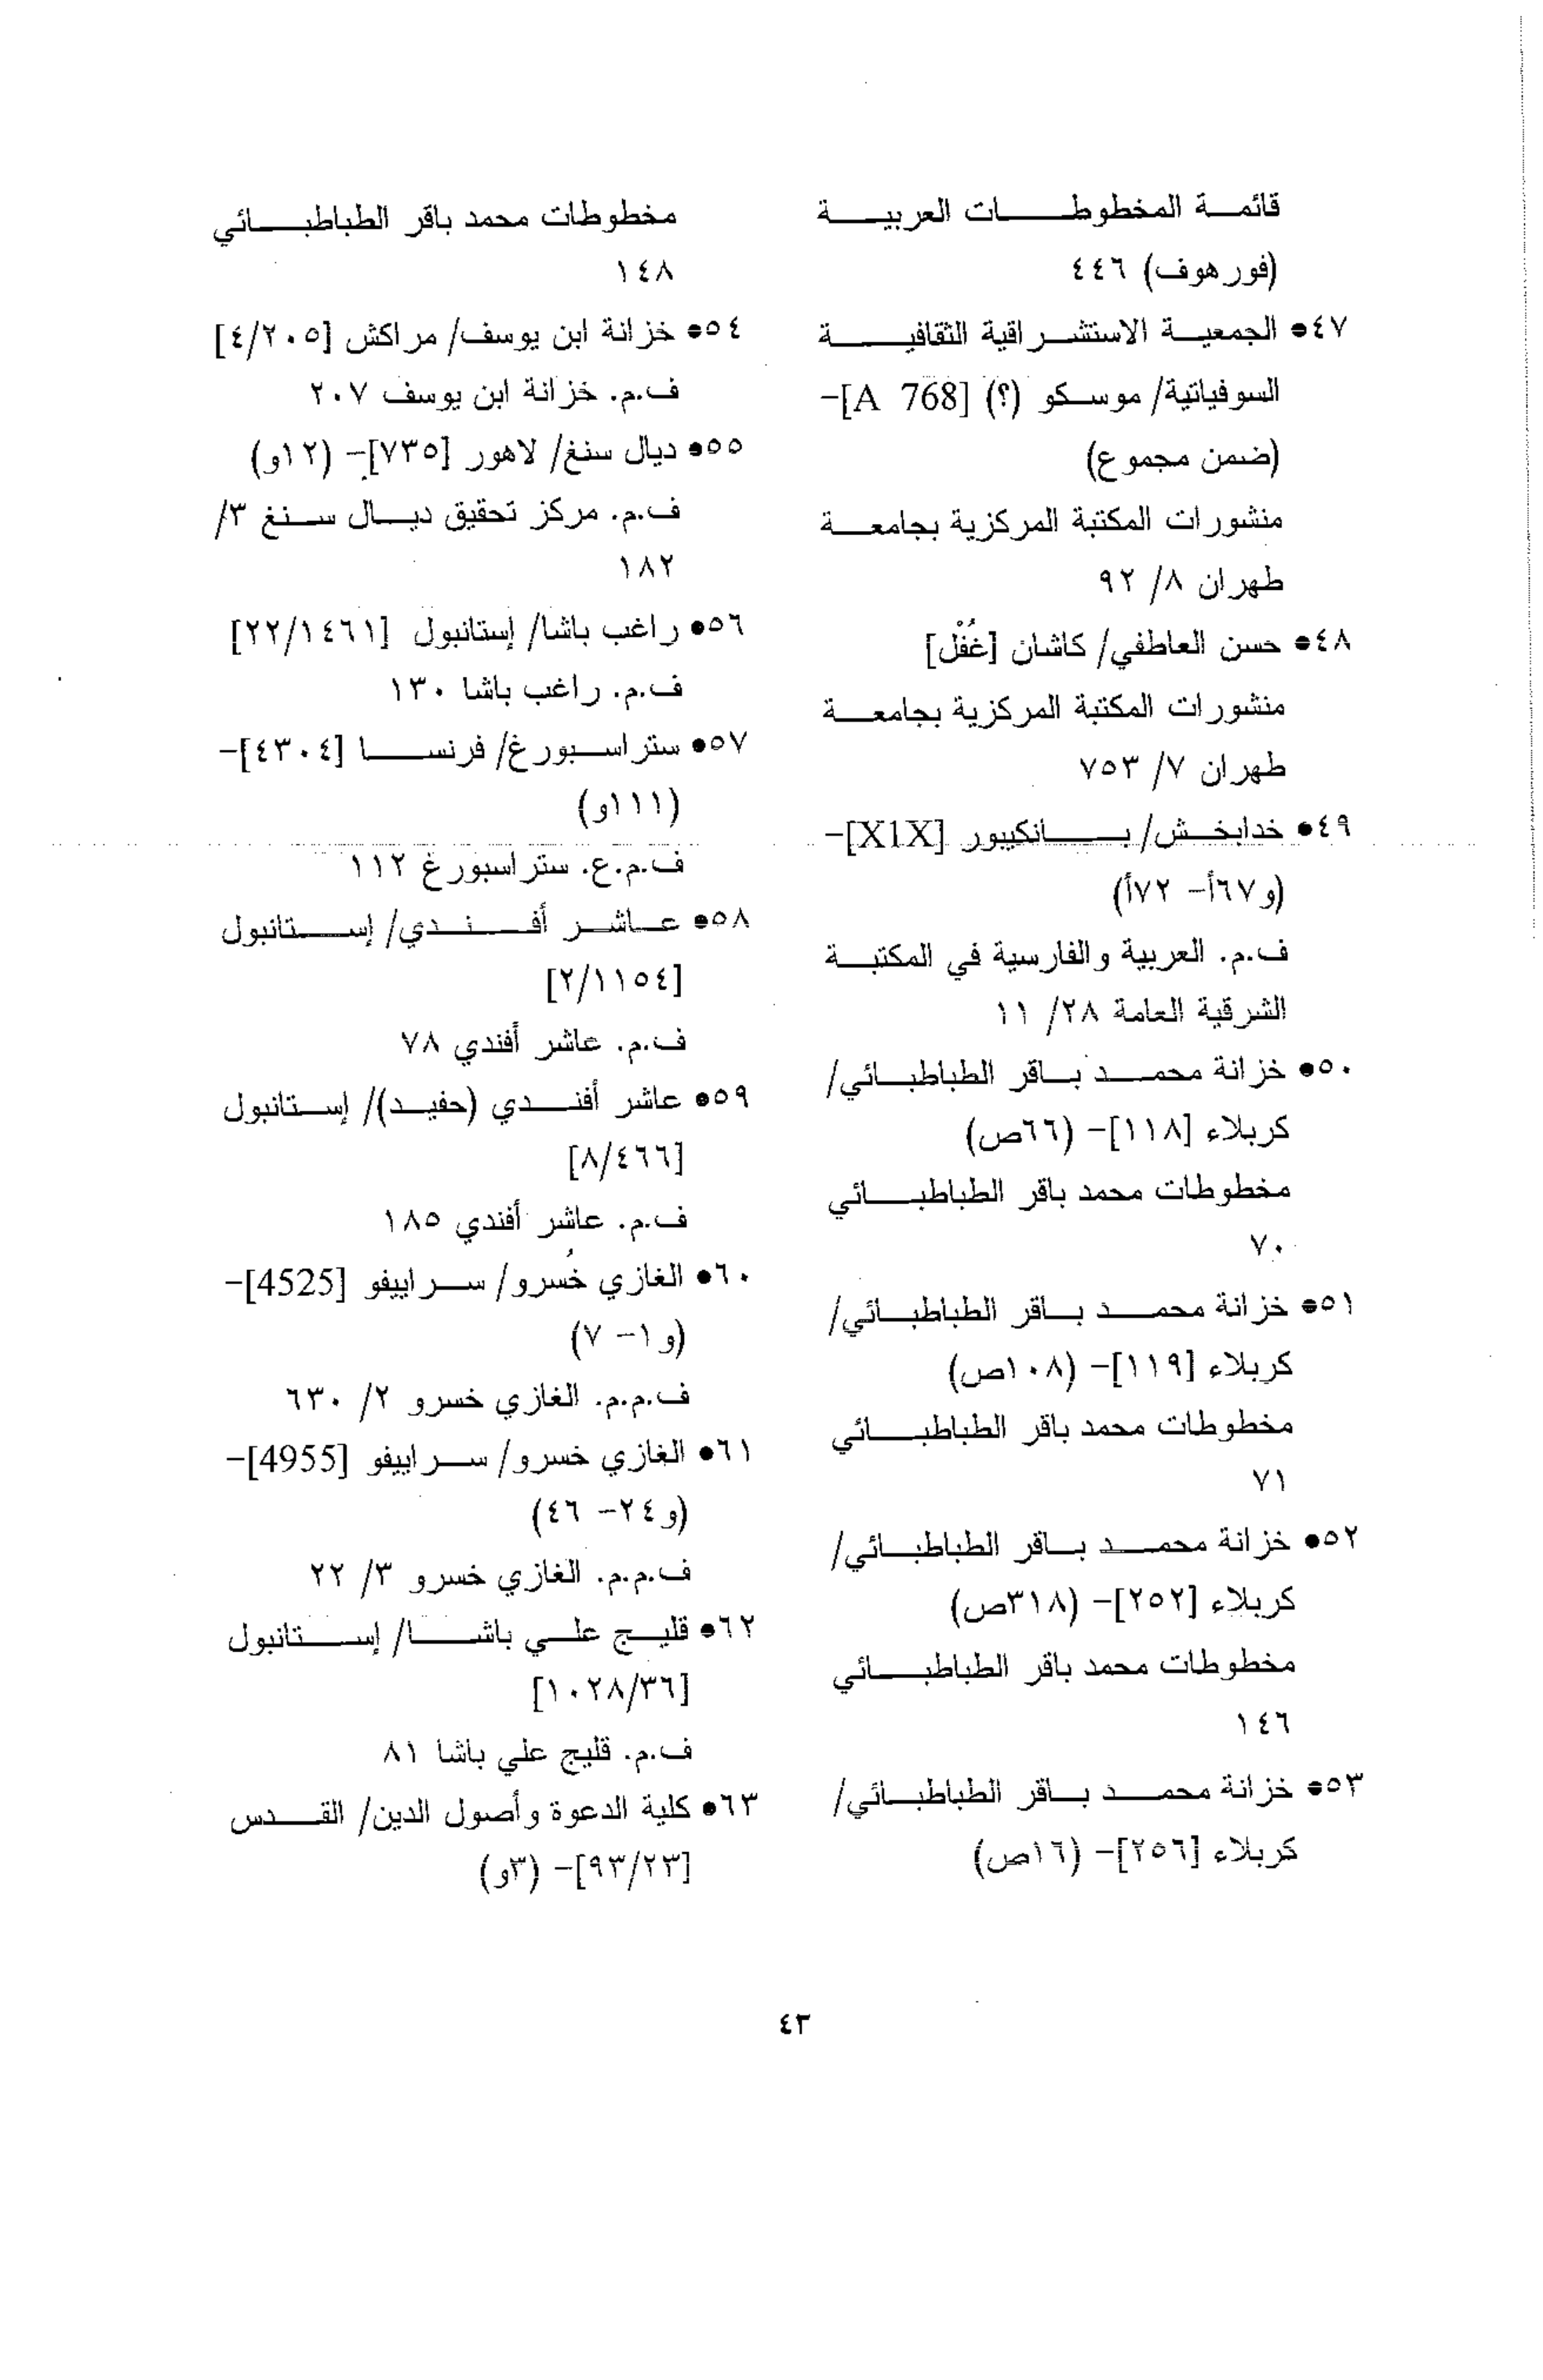 قائمة المخطوطات العربية
(فورهوف) ٤٤٦
٤٧● الجمعية الاستشراقية الثقافية
السوفياتية/ موسكو (؟) [A 768]-
(ضمن مجموع)
منشورات المكتبة المركزية بجامعة
طهران ٨/ ٩٢
٤٨● حسن العاطفي/ كاشان [غُفْل]
منشورات المكتبة المركزية بجامعة
طهران ٧/ ٧٥٣
٤٩● خدابخش/ بانكيبور [X1X]-
(و٦٧أ- ٧٢أ)
ف.م. العربية والفارسية في المكتبة
الشرقية العامة ٢٨/ ١١
٥٠● خزانة محمد باقر الطباطبائي/
كربلاء [١١٨]- (٦٦ص)
مخطوطات محمد باقر الطباطبائي
٧٠
٥١● خزانة محمد باقر الطباطبائي/
كربلاء [١١٩]- (١٠٨ص)
مخطوطات محمد باقر الطباطبائي
٧١
٥٢● خزانة محمد باقر الطباطبائي/
كربلاء [٢٥٢]- (٣١٨ص)
مخطوطات محمد باقر الطباطبائي
١٤٦
٥٣● خزانة محمد باقر الطباطبائي/
كربلاء [٢٥٦]- (١٦ص)
مخطوطات محمد باقر الطباطبائي
١٤٨
٥٤● خزانة ابن يوسف/ مراكش [٤/٢٠٥]
ف.م. خزانة ابن يوسف ٢٠٧
٥٥● ديال سنغ/ لاهور [٧٣٥]- (١٢و)
ف.م. مركز تحقيق ديال سنغ ٣/
١٨٢
٥٦● راغب باشا/ إستانبول [٢٢/١٤٦١]
ف.م. راغب باشا ١٣٠
٥٧● ستراسبورغ/ فرنسا [٤٣٠٤]-
(١١١و)
ف.م.ع. ستراسبورغ ١١٢
٥٨● عاشر أفندي/ إستانبول
[٢/١١٥٤]
ف.م. عاشر أفندي ٧٨
٥٩● عاشر أفندي (حفيد)/ إستانبول
[٨/٤٦٦]
ف.م. عاشر أفندي ١٨٥
٦٠● الغازي خُسرو/ سراييفو [4525]-
(و١- ٧)
ف.م.م. الغازي خسرو ٢/ ٦٣٠
٦١● الغازي خسرو/ سراييفو [4955]-
(و٢٤- ٤٦)
ف.م.م. الغازي خسرو ٣/ ٢٢
٦٢● قليج علي باشا/ إستانبول
[١٠٢٨/٣٦]
ف.م. قليج علي باشا ٨١
٦٣● كلية الدعوة وأصول الدين/ القدس
[٩٣/٢٣]- (٣و)
٤٣